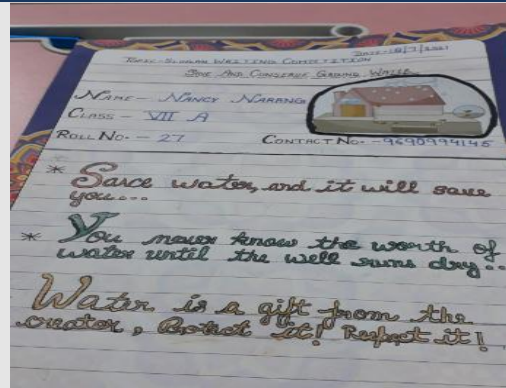 DATE:-18/7/2021
TOPIC-SLOGAN WRITING COMPETITION
SAVE AND CONSERVE GROUND WATER
NAME- NANCY NARANG
CLASS- VII A
ROLL NO.- 27
CONTACT NO.-9690994145
* Save water, and it will save
you....
* You never know the worth of
water until the well runs dry..
Water is a gift from the
creator, Protect it! Respect it!